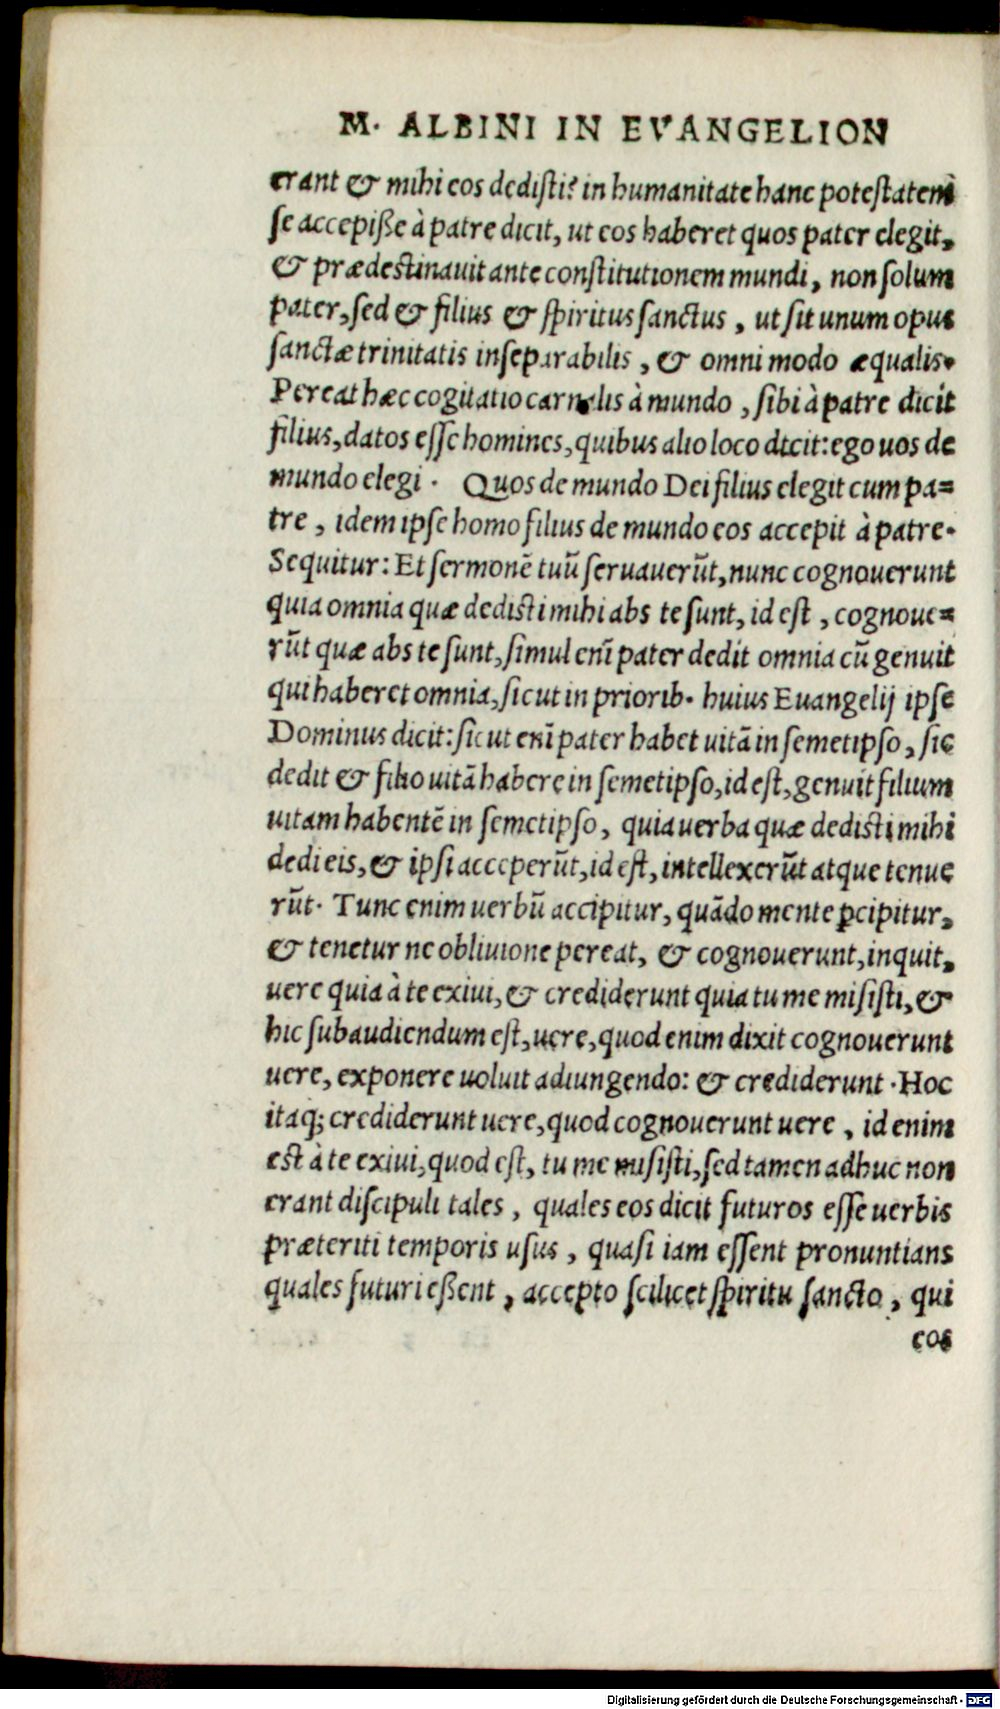 M. ALBINI IN EVANGELION
erant & mihi eos dedisti? in humanitate hanc potestatem
se accepiße à patre dicit, ut eos haberet quos pater elegit,
& prædestinauit ante constitutionem mundi, non solum
pater, sed & filius & spiritus sanctus, ut sit unum opus
sanctæ trinitatis inseparabilis, & omni modo æqualis.
Pereat hæc cogitatio carnalis à mundo, sibi à patre dicit
filius, datos esse homines, quibus alio loco dicit: ego uos de
mundo elegi. Quos de mundo Dei filius elegit cum pa=
tre, idem ipse homo filius de mundo eos accepit à patre.
Sequitur: Et sermonē tuū seruauerūt, nunc cognouerunt
quia omnia quæ dedisti mihi abs te sunt, id est, cognoue=
rūt quæ abs te sunt, simul enī pater dedit omnia cū genuit
qui haberet omnia, sicut in priorib. huius Euangelij ipse
Dominus dicit: sicut enī pater habet uitā in semetipso, sic
dedit & filio uitā habere in semetipso, id est, genuit filium
uitam habentē in semetipso, quia uerba quæ dedisti mihi
dedi eis, & ipsi acceperūt, id est, intellexerūt atque tenue
rūt. Tunc enim uerbū accipitur, quādo mente ꝑcipitur,
& tenetur ne obliuione pereat, & cognouerunt, inquit,
uere quia à te exiui, & crediderunt quia tu me misisti, &
hic subaudiendum est, uere, quod enim dixit cognouerunt
uere, exponere uoluit adiungendo: & crediderunt. Hoc
itaq; crediderunt uere, quod cognouerunt uere, id enim
est à te exiui, quod est, tu me misisti, sed tamen adhuc non
erant discipuli tales, quales eos dicit futuros esse uerbis
præteriti temporis usus, quasi iam essent pronuntians
quales futuri eßent, accepto scilicet spiritu sancto, qui
eos
Digitalisierung gefördert durch die Deutsche Forschungsgemeinschaft - DFG